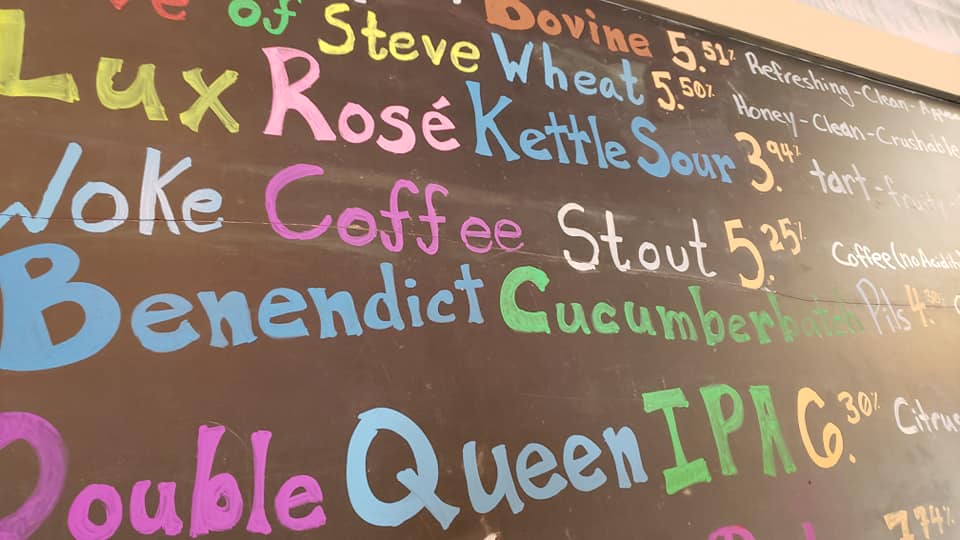 of Steve Wheat 5.50% Honey-Clean-Crushable
Bovine 5.51% Refreshing-Clean-
Lux Rosé Kettle Sour 3.94% tart-fruity-
Woke Coffee Stout 5.25% Coffee(no Acidity)
Benendict Cucumberbatch Pils 4.30%
Double Queen IPA 6.30% Citrus
7.74%